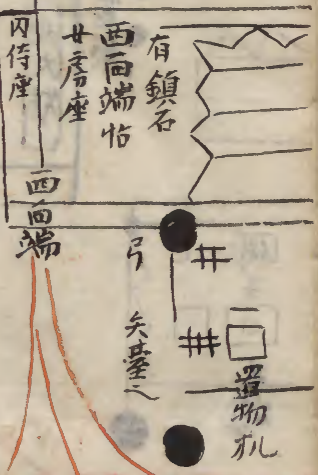 有鎮石
西面端帖
女房座
内侍座
西面端
弓
矢臺
置物机